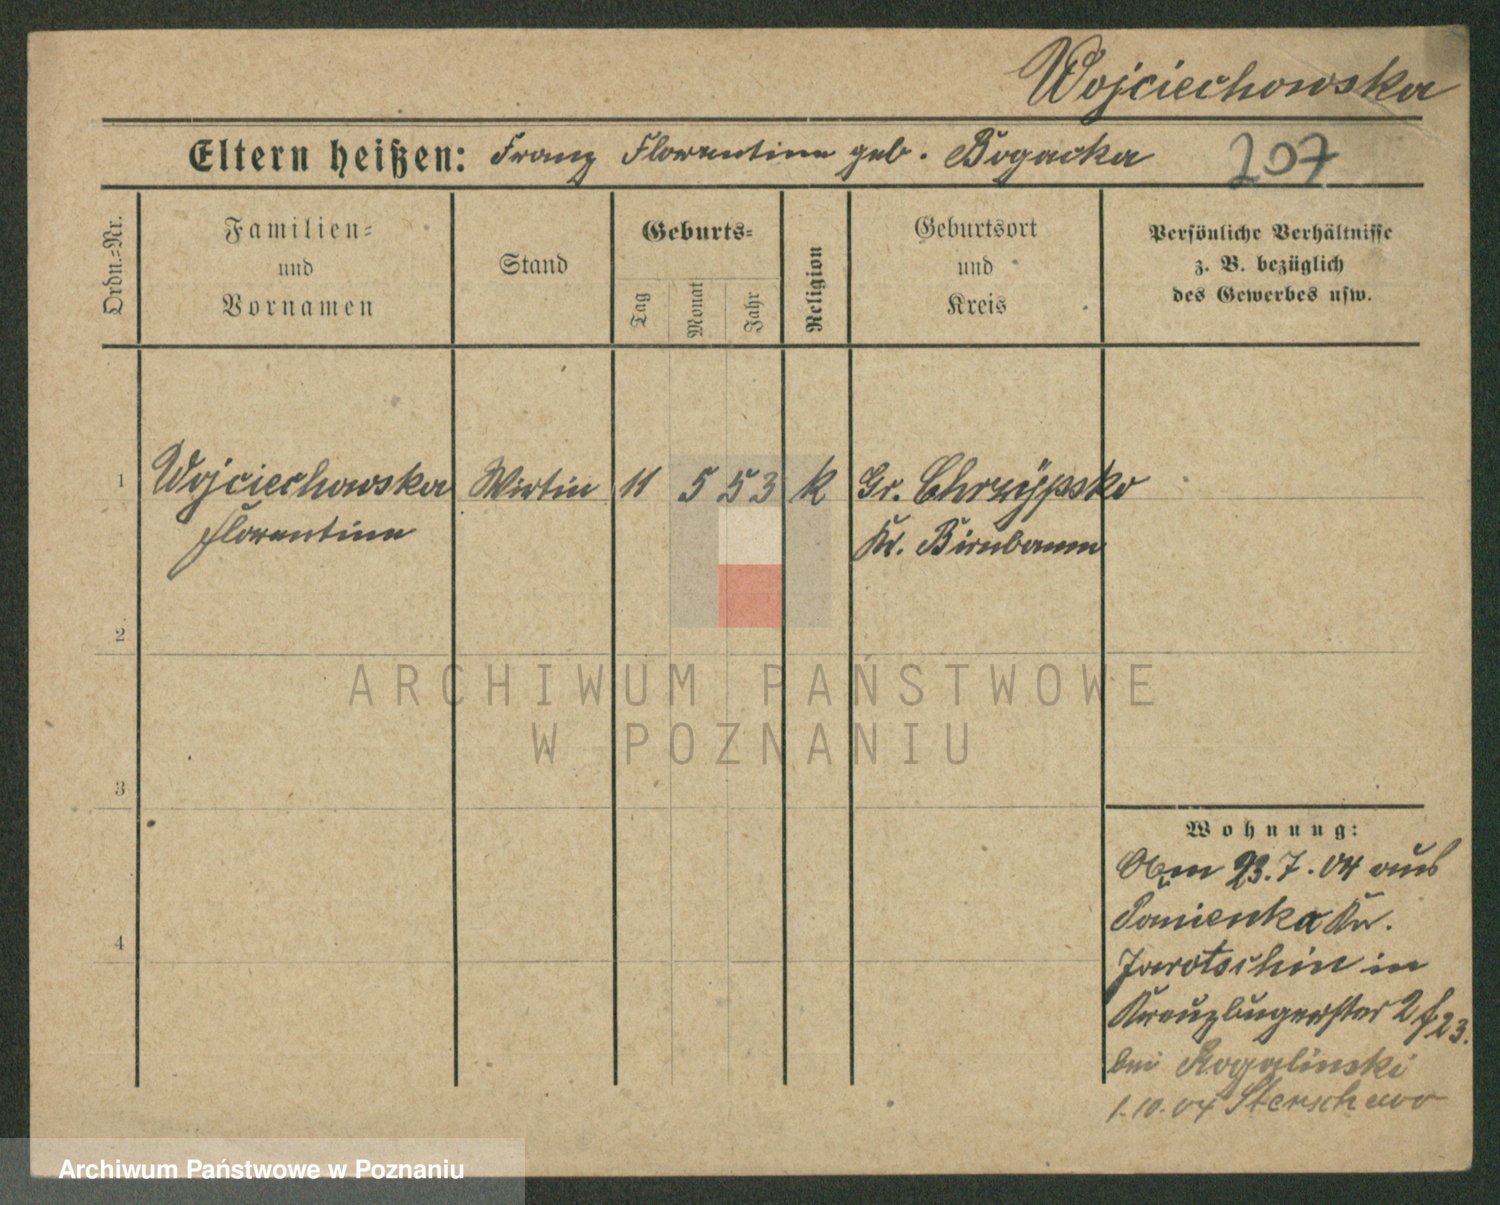 Wojciechowska
Eltern heißen: Franz Florentine geb. Bogacka
207
Ordn.-Nr.
Familien-
und
Vornamen
Stand
Geburts-
Tag
Monat
Jahr
Religion
Geburtsort
und
Kreis
Persönliche Verhältnisse
z. B. bezüglich
des Gewerbes usw.
1 Wojciechowska Wirtin 11 5 53 k Gr. Chrzypsko
Florentine Kr. Birnbaum
2
ARCHIWUM PAŃSTWOWE
W POZNANIU
3
Wohnung:
23.7.04 aus
Kr.
4
Jarotschin in
2
23.
bei Rogalinski
1.10.04
Archiwum Państwowe w Poznaniu